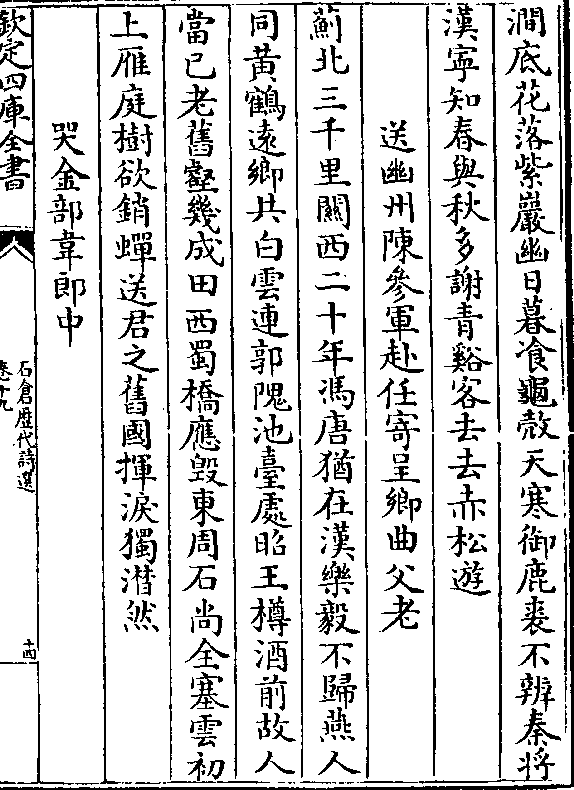 澗底花落紫巖幽日暮飡龜殻天寒御鹿裘不辨秦將
漢寧知春與秋多謝青谿客去去赤松遊
送幽州陳參軍赴任寄呈鄉曲父老
薊北三千里關西二十年馮唐猶在漢樂毅不歸燕人
同黄鶴逺鄉共白雲連郭隗池臺處昭王樽酒前故人
當已老舊壑幾成田西蜀橋應毁東周石尚全塞雲初
上雁庭樹欲銷蟬送君之舊國揮淚獨潸然
哭金部韋郎中
欽定四庫全書
石倉歷代詩選
卷十九
十四